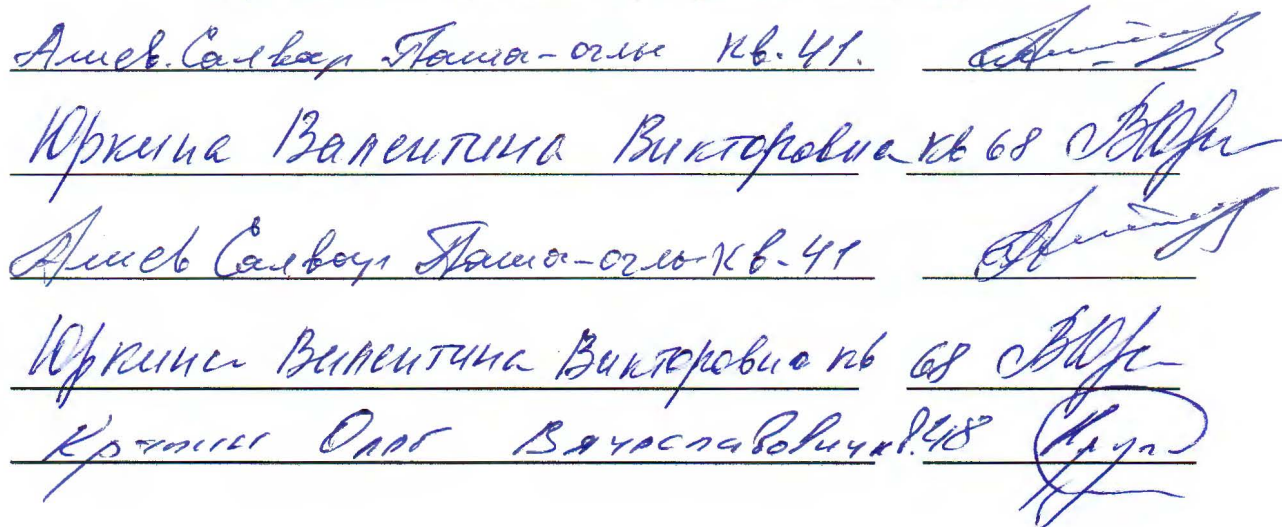 Алиев. Салвар Паша-оглы кв. 41.
Юркина Валентина Викторовна кв 68
Алиев Салвар Паша-оглы кв-41
Юркина Валентина Викторовна кв 68
Олег Вячеславович кв. 48